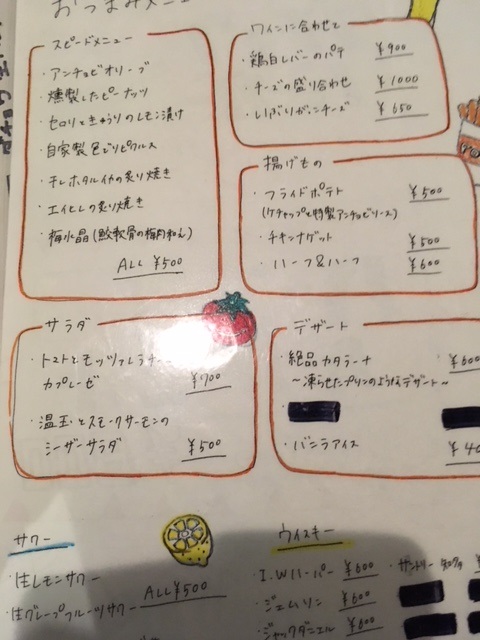 おつまみメニュー
スピードメニュー
・アンチョビオリーブ
・燻製したピーナッツ
・セロリときゅうりのレモン漬け
・自家製色どりピクルス
・干しホタルイカの炙り焼き
・エイヒレの炙り焼き
・梅水晶(鮫軟骨の梅肉和え)
ALL ¥500
ワインに合わせて
・鶏白レバーのパテ ¥900
・チーズの盛り合わせ ¥1000
・いぶりがっこチーズ ¥650
揚げもの
・フライドポテト ¥500
(ケチャップと特製アンチョビソース)
・チキンナゲット ¥500
・ハーフ&ハーフ ¥600
サラダ
・トマトとモッツァレラチーズ
カプレーゼ ¥700
・温玉とスモークサーモンの
シーザーサラダ ¥500
デザート
・絶品カタラーナ ¥600
〜凍らせたプリンのようなデザート〜
・バニラアイス ¥40
サワー
・生レモンサワー
・生グレープフルーツサワー ALL ¥500
ウイスキー
・I.Wハーパー ¥600
・ジェムソン ¥600
・ジャックダニエル ¥600
・サントリー